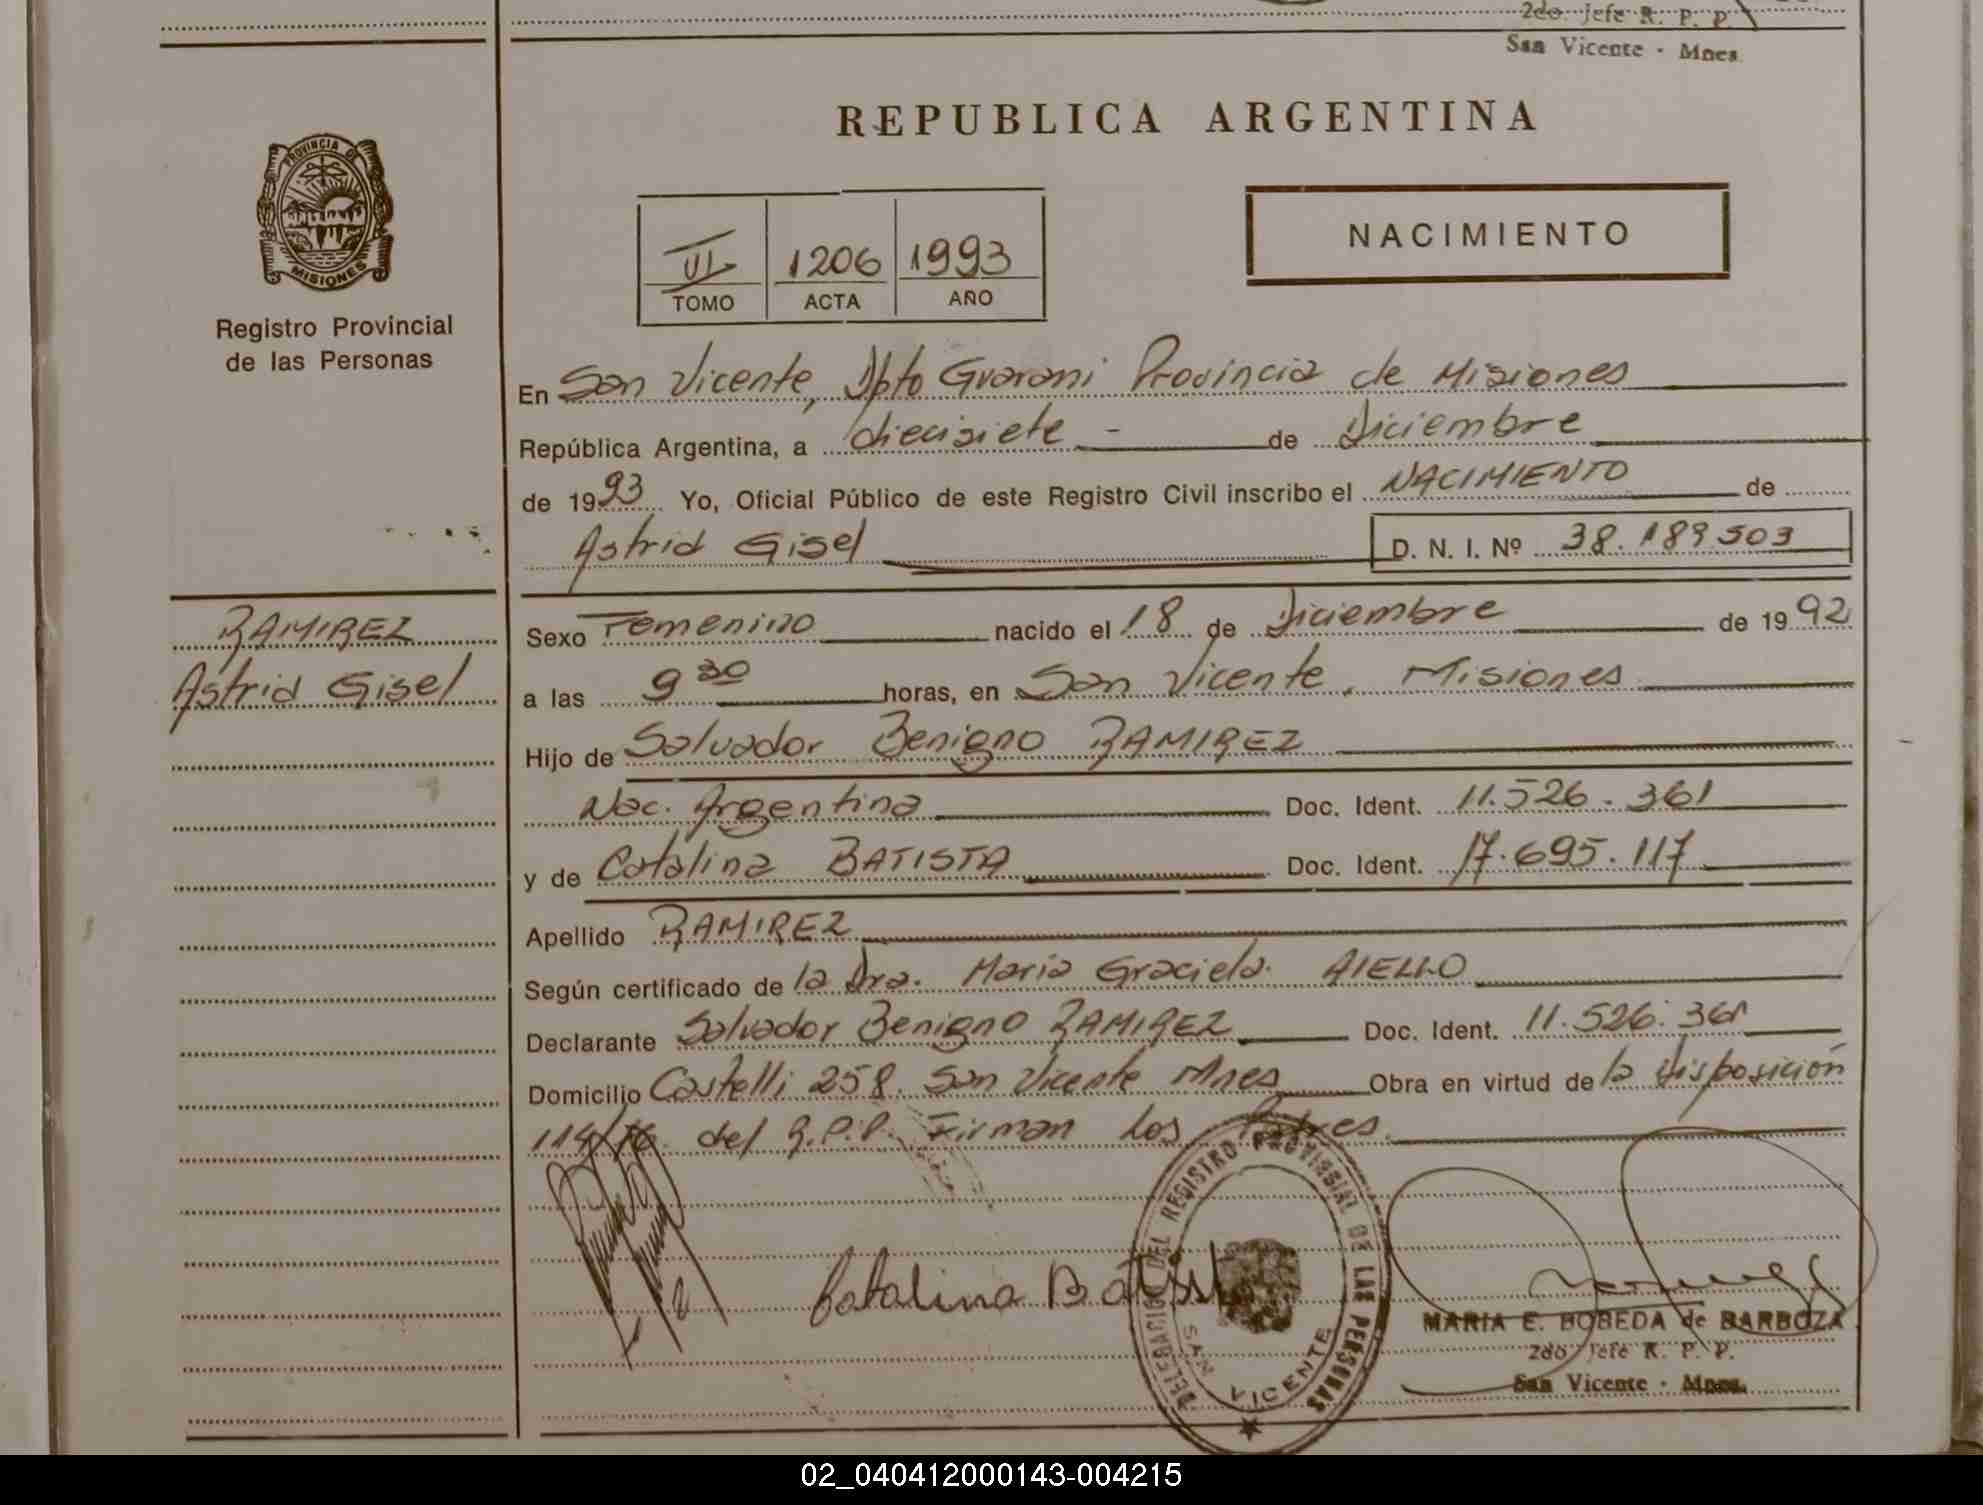 2do. Jefe R. P. P.
San Vicente - Mnes.
REPUBLICA ARGENTINA
PROVINCIA DE
MISIONES
Registro Provincial
de las Personas
VI 1206 1993
TOMO ACTA AÑO
NACIMIENTO
En San Vicente, Dpto Guarani Provincia de Misiones
República Argentina, a diecisiete - de Diciembre
de 1993 Yo, Oficial Público de este Registro Civil inscribo el NACIMIENTO de
Astrid Gisel D. N. I. Nº 38.189.503
RAMIREZ
Astrid Gisel
Sexo Femenino nacido el 18 de Diciembre de 1992
a las 9 30 horas, en San Vicente, Misiones
Hijo de Salvador Benigno RAMIREZ
Nac. Argentina Doc. Ident. 11.526.361
y de Catalina BATISTA Doc. Ident. 17.695.117
Apellido RAMIREZ
Según certificado de la Dra. Maria Graciela AIELLO
Declarante Salvador Benigno RAMIREZ Doc. Ident. 11.526.361
Domicilio Castelli 258. San Vicente Mnes Obra en virtud de la Disposición
114/76. del R.P.P. Firman los Padres.
Catalina Batista
DELEGACION DEL REGISTRO PROVINCIAL DE LAS PERSONAS
SAN VICENTE
MARIA E. BOBEDA de BARBOZA
2do Jefe R. P. P.
San Vicente - Mnes.
02_040412000143-004215